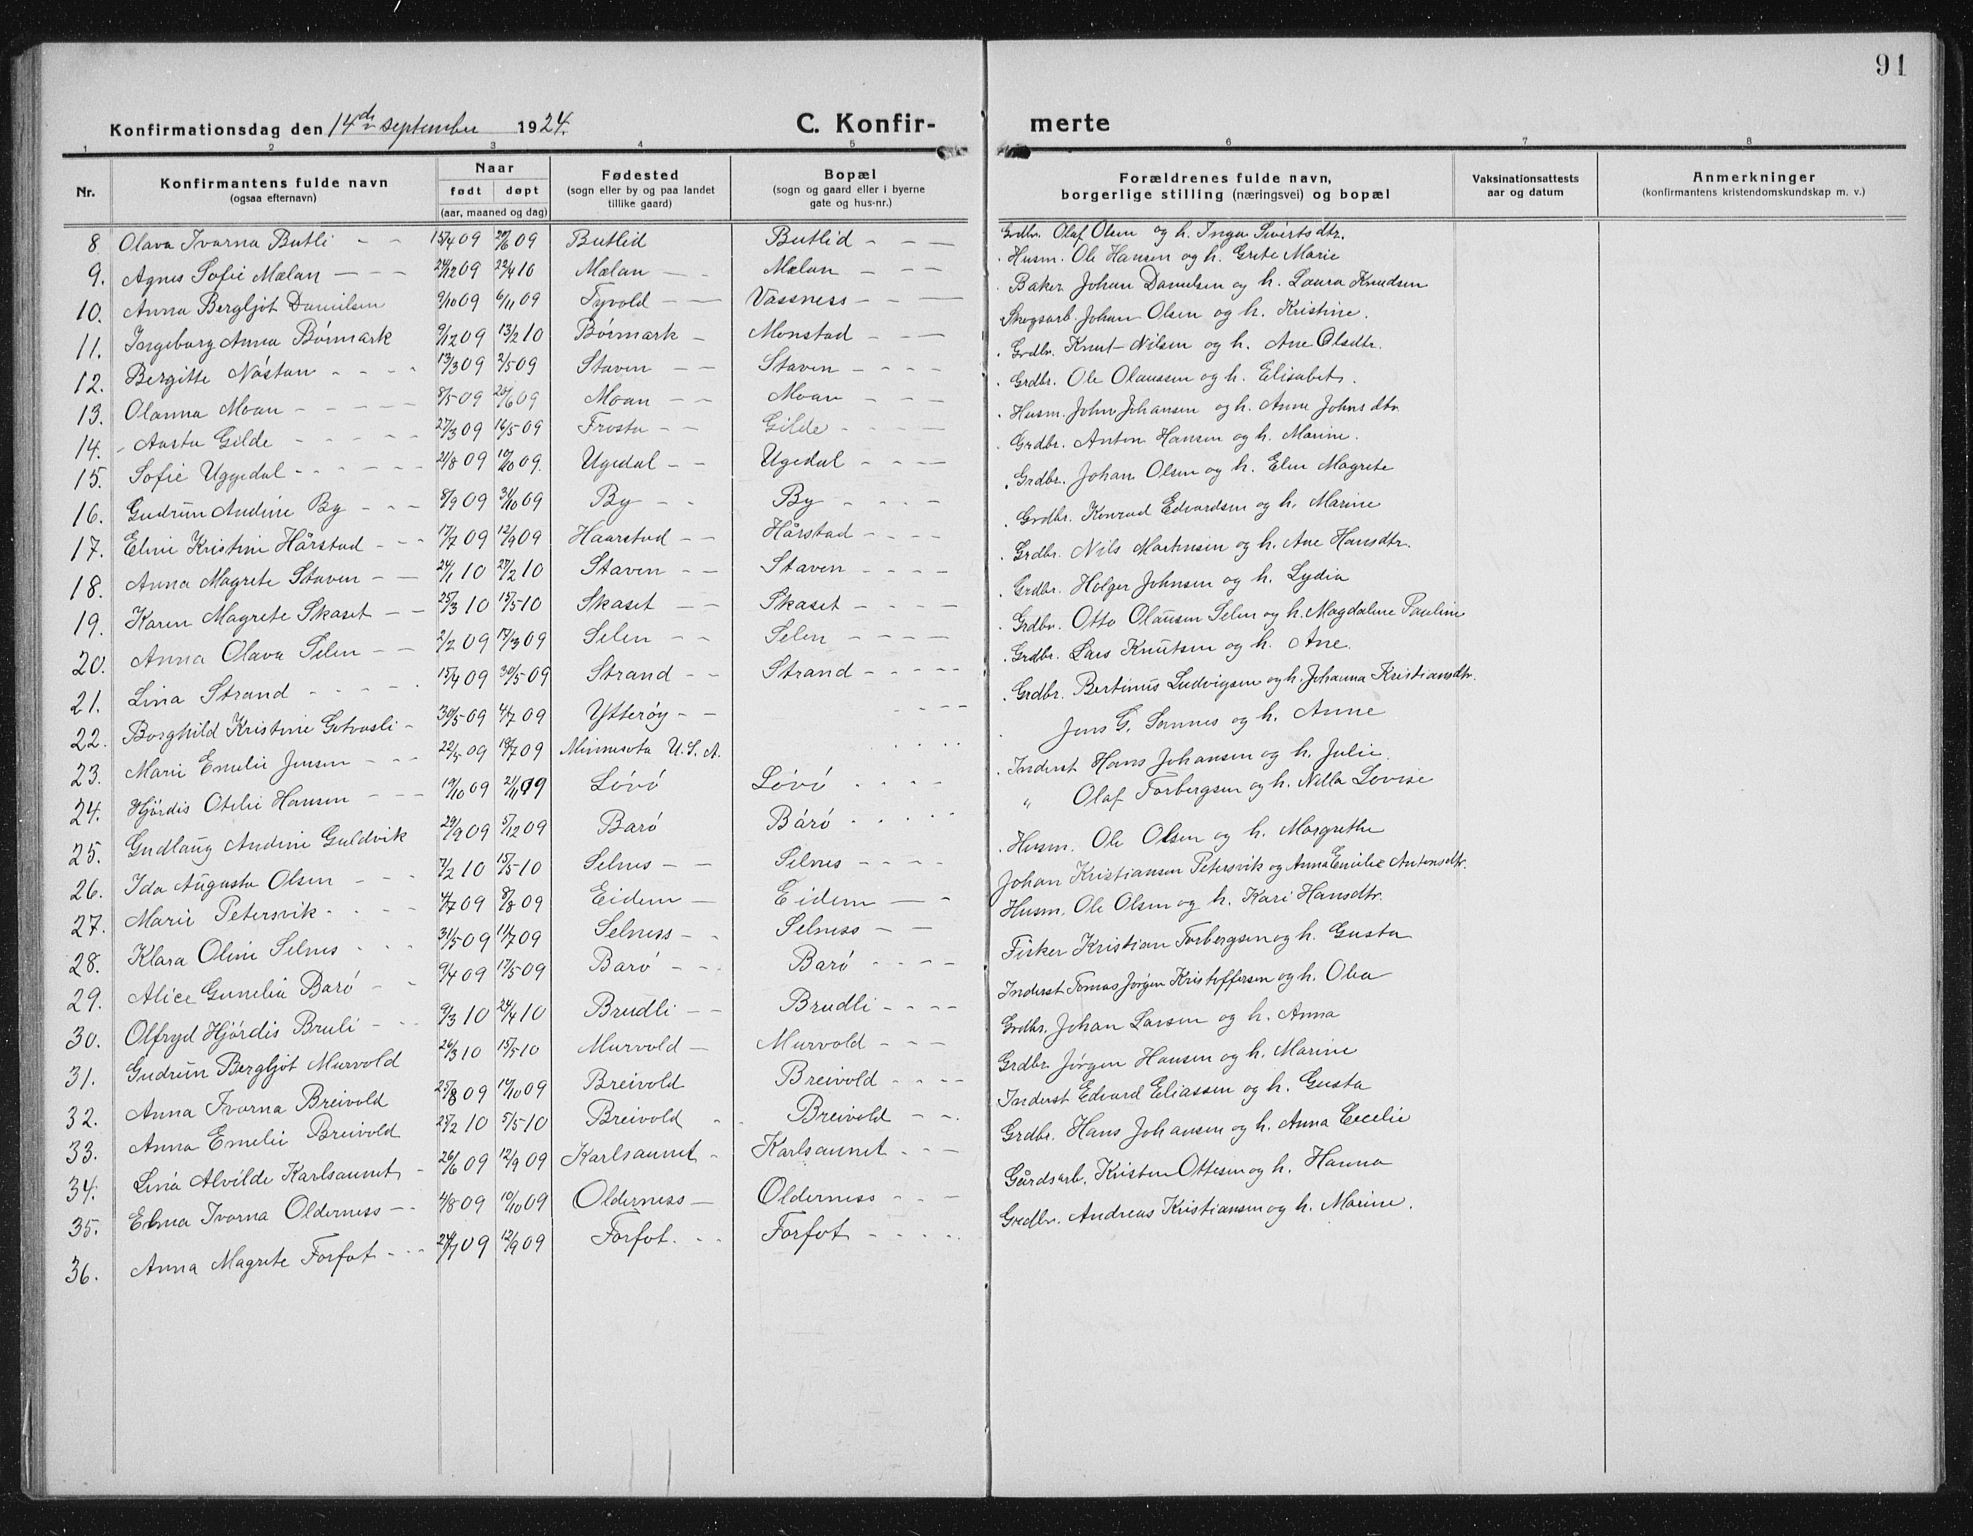 91
Konfirmationsdag den 14de september 1924. C. Konfirmerte
1 2 3 4 5 6 7 8
Nr. Konfirmantens fulde navn (ogsaa efternavn) Naar født døpt (aar, maaned og dag) Fødested (sogn eller by og paa landet tillike gaard) Bopæl (sogn og gaard eller i byerne gate og hus-nr.) Forældrenes fulde navn, borgerlige stilling (næringsvei) og bopæl Vaksinationsattests aar og datum Anmerkninger (konfirmantens kristendomskundskap m. v.)
8 Olava Ivarna Butli - - 15/4 09 20/6 09 Butlid Butlid - - - Grdbr. Olaf Olsen og h. Inga Sivertsdtr.
9. Agnes Sofie Mælan - - - 24/12 09 22/4 10 Mælan - - Mælan - - - Husm. Ole Hansen og h. Grete Marie
10. Anna Bergljot Danielsen 9/10 09 6/11 09 Tyvold - - Vassness - - - Baker Johan Danielsen og h. Laura Knudsen
11. Ingeborg Anna Börmark 9/12 09 13/2 10 Börmark - Monstad - - - Skogsarb. Johan Olsen og h. Kristine.
12. Bergitte Nöstan - - - - 13/3 09 2/5 09 Staven - - Staven - - - - Grdbr. Knut Nilsen og h. Ane Olsdtr.
13. Olanna Moan - - - - - 8/5 09 20/6 09 Moan - - Moan - - - Grdbr. Ole Olaussen og h. Elisabet.
14. Aasta Gilde - - - - - 27/3 09 16/5 09 Frosta - - Gilde - - - - Husm. John Johansen og h. Anne Johnsdtr.
15. Sofie Uggedal - - - - - 21/8 09 10/10 09. Ugedal - - Ugedal - - - Grdbr. Anton Hansen og h. Marine.
16. Gudrun Andine By - - - 8/9 09 31/10 09 By - - By - - - - Grdbr. Johan Olsen og h. Elen Magrete
17. Eline Kristine Hårstad - - - 17/7 09 12/9 09 Haarstad - - Hårstad - - - - Grdbr. Konrad Edvardsen og h. Marine
18. Anna Magrete Staven - - 24/1 10 27/2 10 Staven - - Staven - - - - Grdbr. Nils Martinsen og h. Ane Hansdtr.
19. Karen Magrete Skaset - - 25/3 10 15/5 10 Skaset - - Skaset - - - - Grdbr. Holger Johnsen og h. Lydia
20. Anna Olava Selen - - 2/2 09 17/3 09 Selen - - Selen - - - - Grdbr. Otto Olausen Selen og h. Magdalene Pauline
21. Lina Strand - - - - - 15/4 09 30/5 09 Strand - - Strand - - - - Grdbr. Lars Knutsen og h. Ane.
22. Borghild Kristine Gotvasli - 30/5 09 4/7 09 Ytteröy - - - - - - Grdbr. Bertinus Ludvigsen og h. Johanna Kristiansdtr.
23. Marie Emelie Jensen - - - 22/5 09 18/7 09 Minnesota U.S.A. - - - - Jens G. Sannes og h. Anne
24. Hjördis Otelie Hansen - - - 19/10 09 21/11 09 Lövö Lövö - - - Inderst Hans Johansen og h. Julie.
25. Gudlaug Andine Guldvik 29/9 09 5/12 09 Barö Bárö - - - - - " Olaf Torbergsen og h. Nilla Lovise
26. Ida Augusta Olsen - - - 7/2 10 15/5 10 Selnes - - Selnes - - - - Husm. Ole Olsen og h. Margrethe
27. Marie Petersvik - - - - 4/7 09 8/8 09 Eidem - Eidem - - Johan Kristiansen Petersvik og Anna Emilie Antonsdtr.
28. Klara Oline Selnes - - - 31/5 09 11/7 09 Selness - - Selness - - Husm. Ole Olsen og h. Kari Hansdtr.
29. Alice Gunelia Barö - - 9/4 09 17/5 09 Barö - - - Barö - - - - Fisker Kristian Torbergsen og h. Gusta
30. Olfryd Hjördis Bruli - - - 9/3 10 24/4 10 Brudli - - Brudli - - - - Inderst Tomas Jørgen Kristoffersen og h. Olea
31. Gudrun Bergljot Murvold 26/3 10 15/5 10 Murvold - Murvold - - - Grdbr. Johan Larsen og h. Anna
32. Anna Ivarna Breivold 25/8 09 10/10 09 Breivold Breivold - - - - Grdbr. Jørgen Hansen og h. Marine
33. Anna Emelie Breivold 25/2 10 5/5 10 Breivold - Breivold - - Inderst Edvard Eliassen og h. Gusta
34. Lina Alvilde Karlsaunet - 26/6 09 12/9 09 Karlsaunet - Karlsaunet - - - Grdbr. Hans Johansen og h. Anna Cecelie
35. Elma Ivarna Olderness - - 4/8 09 10/10 09 Olderness - Olderness - - - Gårdsarb. Kristen Ottesen og h. Hanna
36. Anna Magrete Forfot - - - 24/7 09 12/9 09 Forfot. - - Forfot - - - - - Gredbr. Andreas Kristiansen og h. Marine.